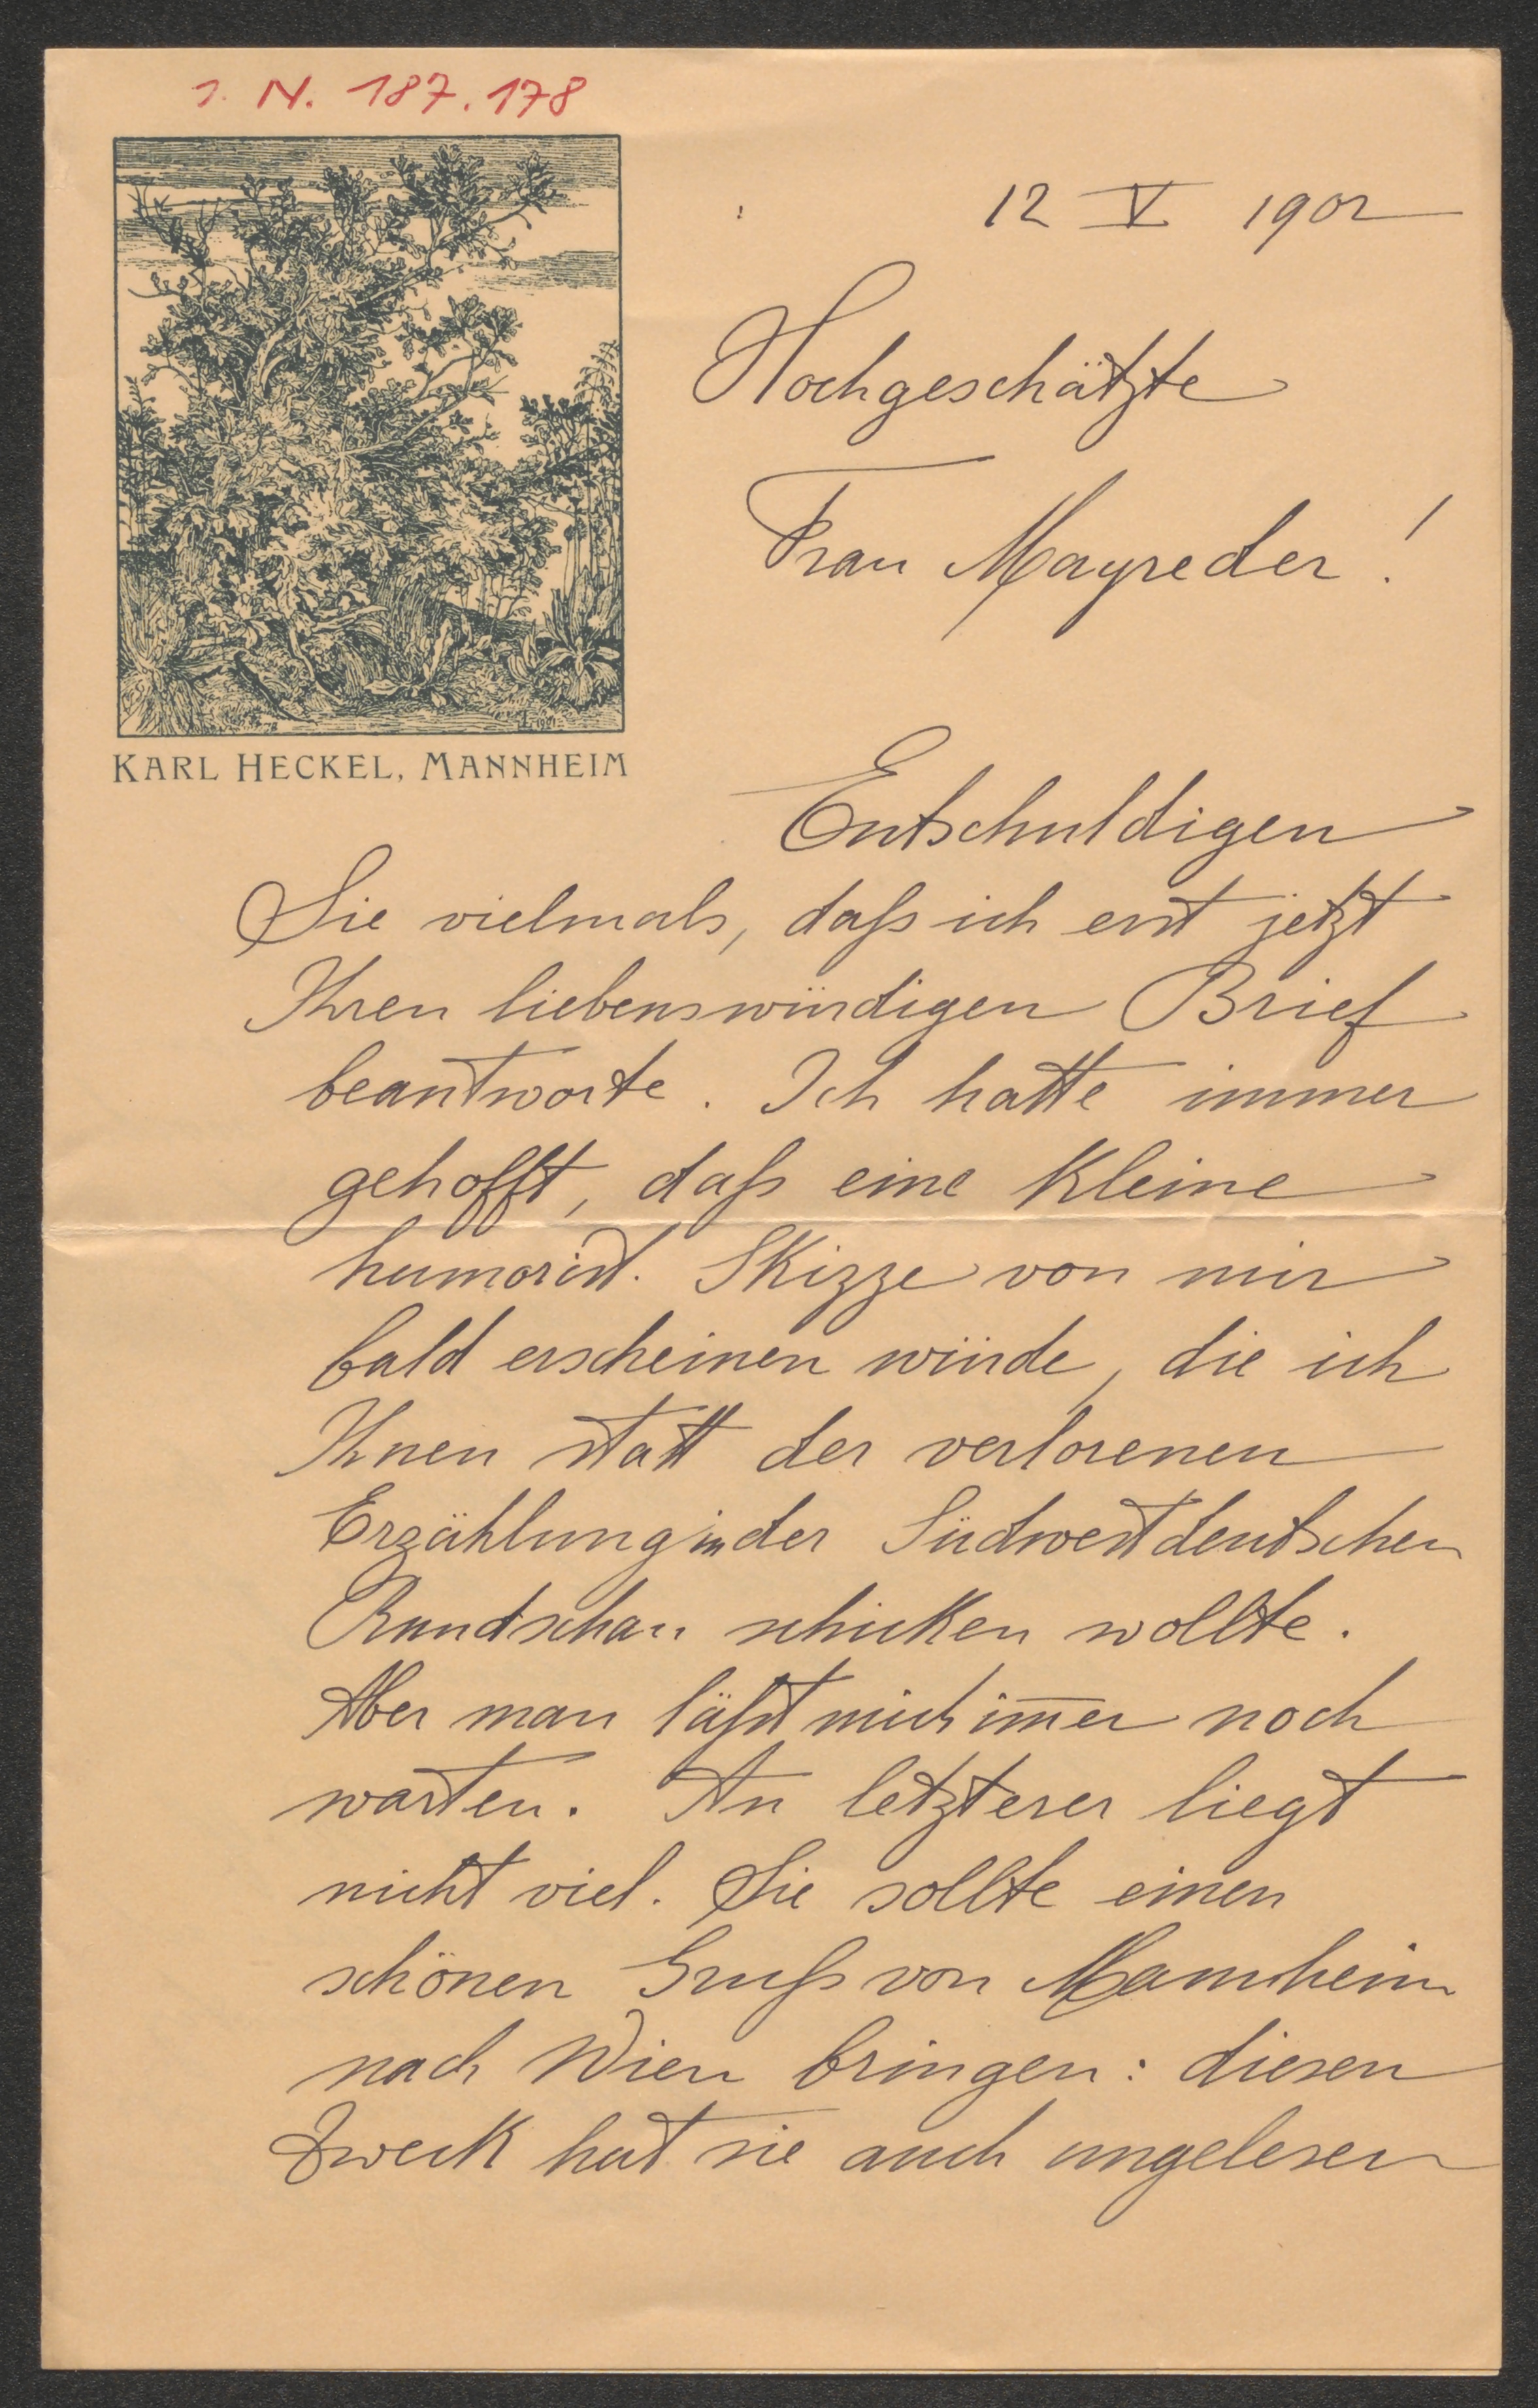 I. N. 187.178
12 V 1902
Hochgeschätzte
Frau Mayreder!
KARL HECKEL, MANNHEIM
Entschuldigen
Sie vielmals, daß ich erst jetzt
Ihren liebenswürdigen Brief
beantworte. Ich hatte immer
gehofft, daß eine kleine
humorist. Skizze von mir
bald erscheinen würde, die ich
Ihnen statt der verlorenen
Erzählung in der Südwestdeutschen
Rundschau schicken wollte.
Aber man läßt mich im̅er noch
warten. An letzterer liegt
nicht viel. Sie sollte einen
schönen Gruß von Mannheim
nach Wien bringen: diesen
Zweck hat sie auch ungelesen